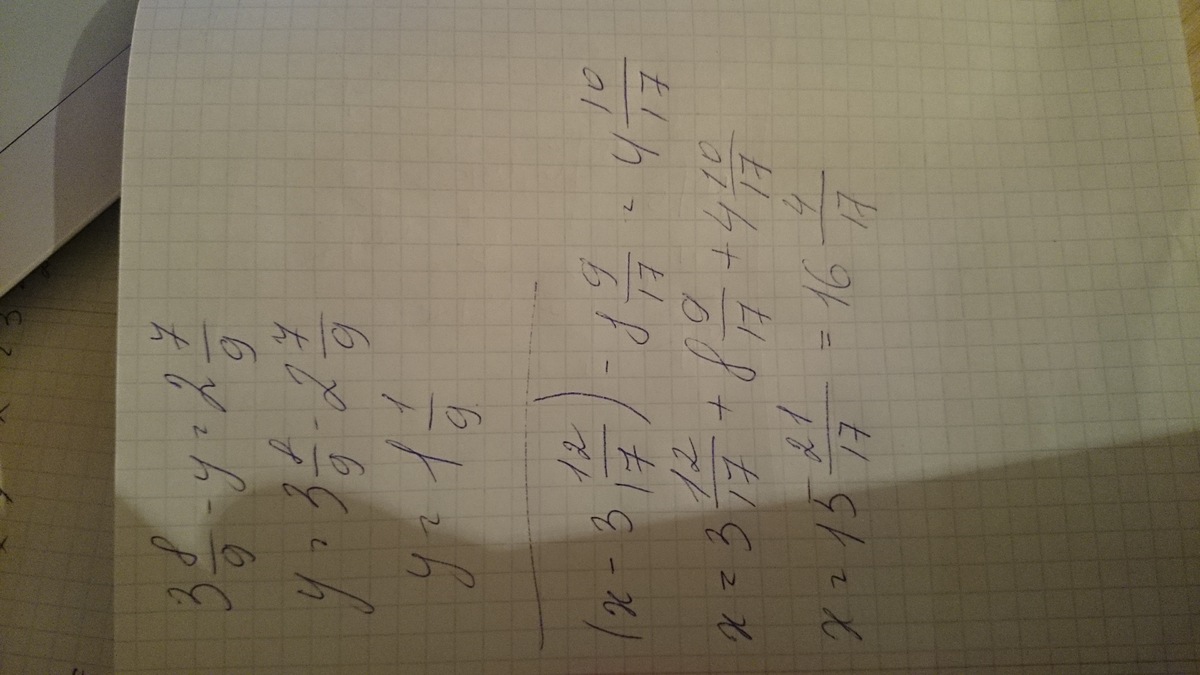 3 8/9 - y = 2 7/9
y = 3 8/9 - 2 7/9
y = 1 1/9
(x - 3 12/17) - 8 9/17 = 4 10/17
x = 3 12/17 + 8 9/17 + 4 10/17
x = 15 21/17 = 16 4/17